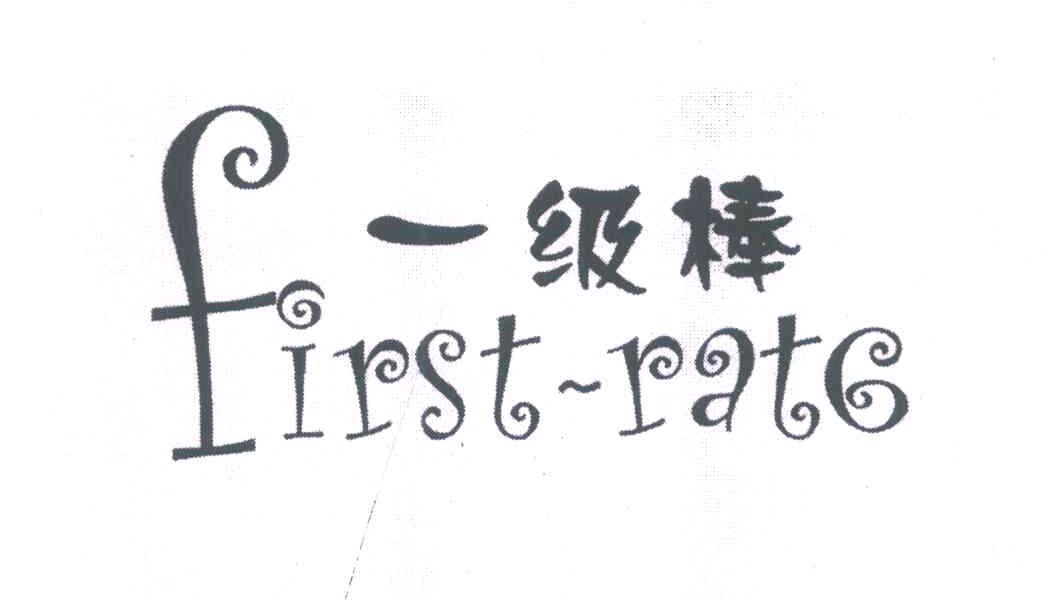 一级棒
first~rate